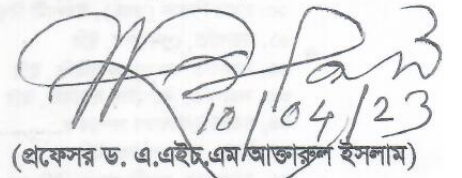 10/04/23
(প্রফেসর ড. এ.এইচ.এম আক্তারুল ইসলাম)